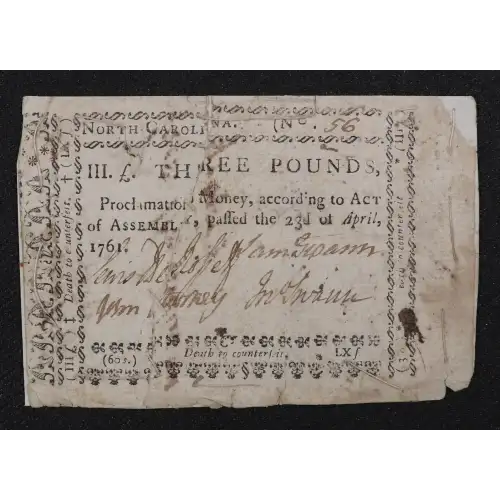 NORTH-CAROLINA. (No. 56
III. £. THREE POUNDS,
Proclamation Money, according to ACT
of ASSEMBLY, paſſed the 23d of April,
1761.
Sam Swann
John Starkey Jno Swann
(60s.) Death to counterfeit. LXſ
Death to counterfeit.